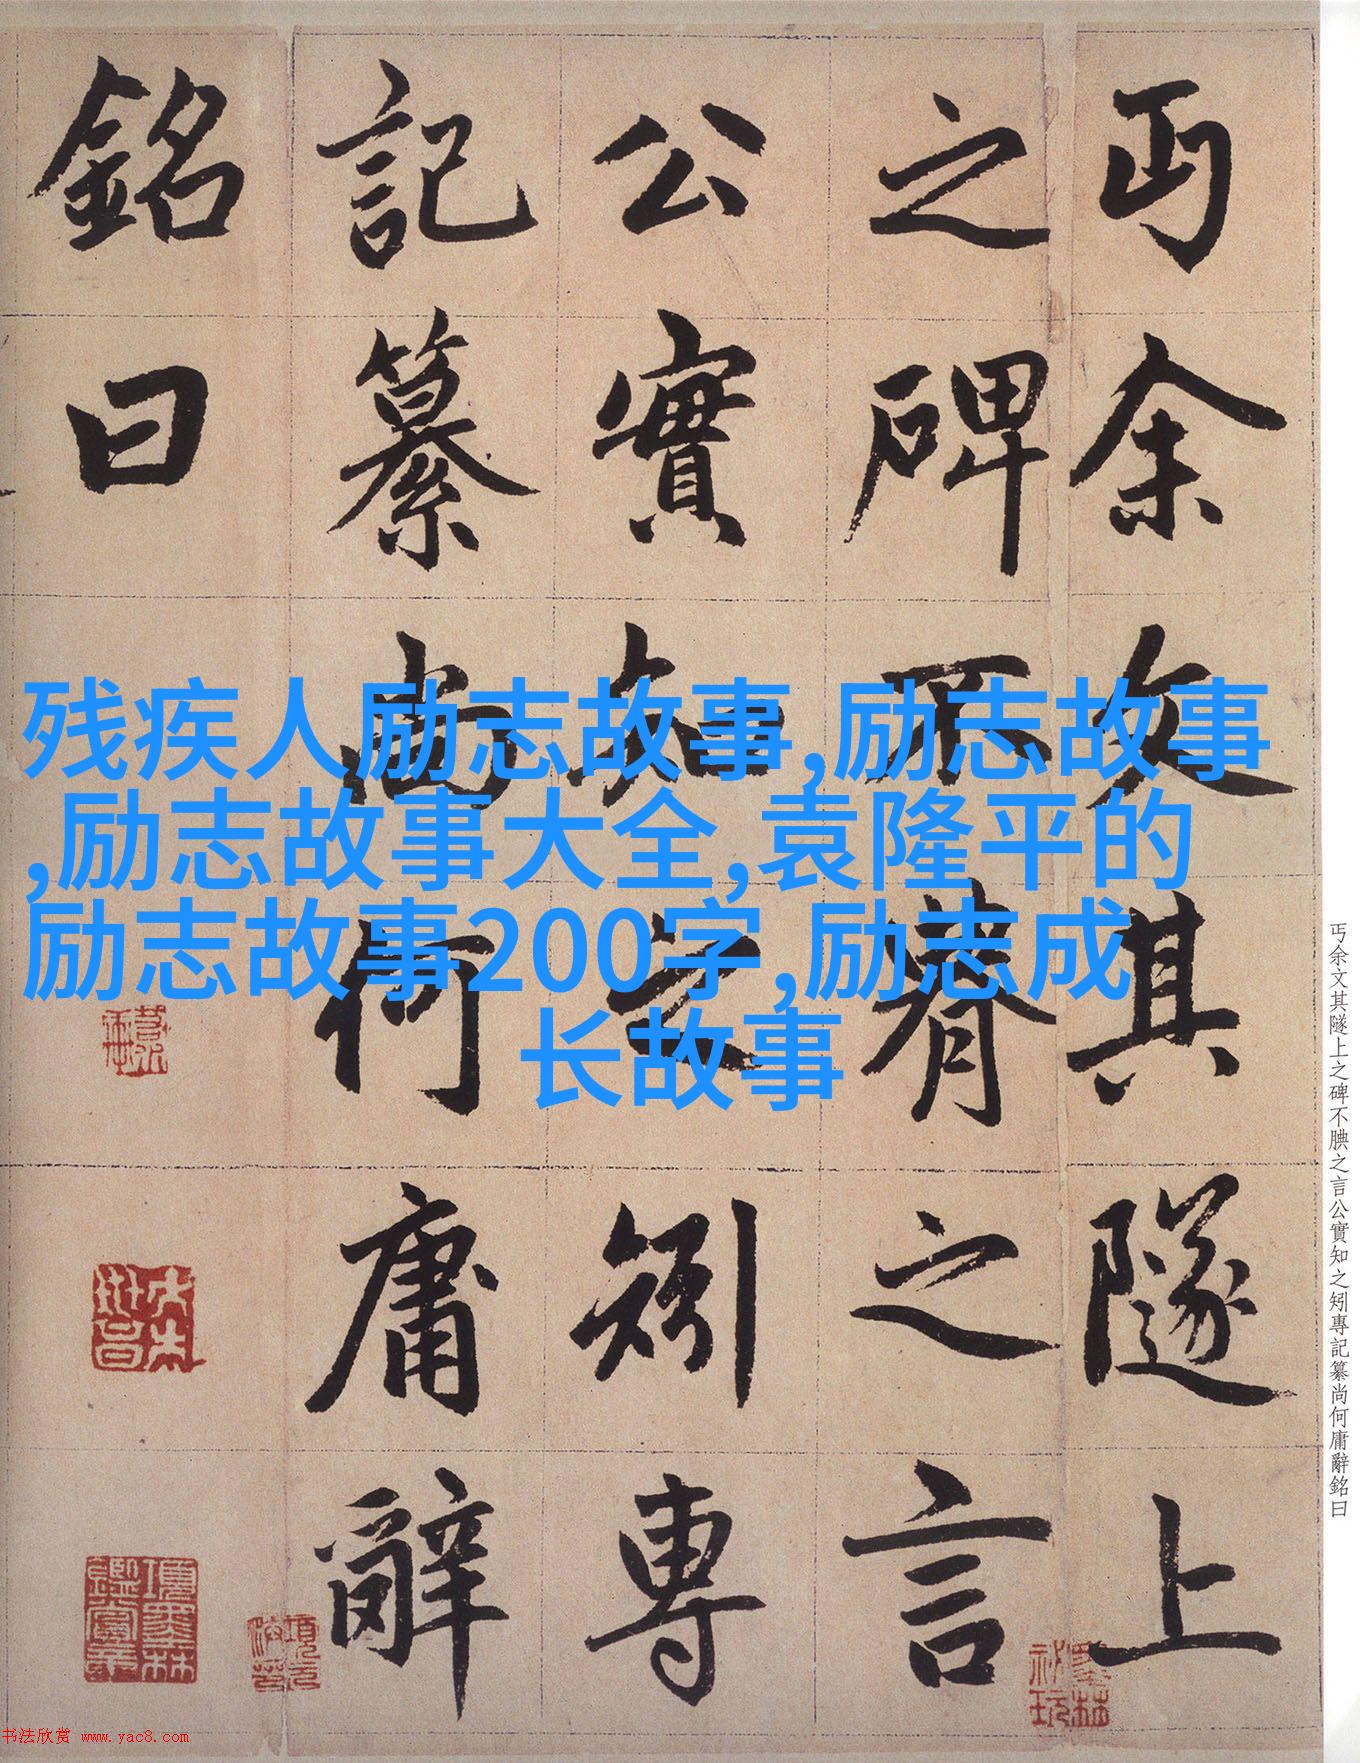 丏余文其隧上
之碑不腆之言
公實知之矧專
記纂尚何庸辭
銘曰
残疾人励志故事,励志故事
,励志故事大全,袁隆平的
励志故事200字,励志成
长故事
丏余文其隧上之碑不腆之言公實知之矧專記纂尚何庸辭銘曰
项墨林鑑賞章
书法欣赏 www.yac8.com